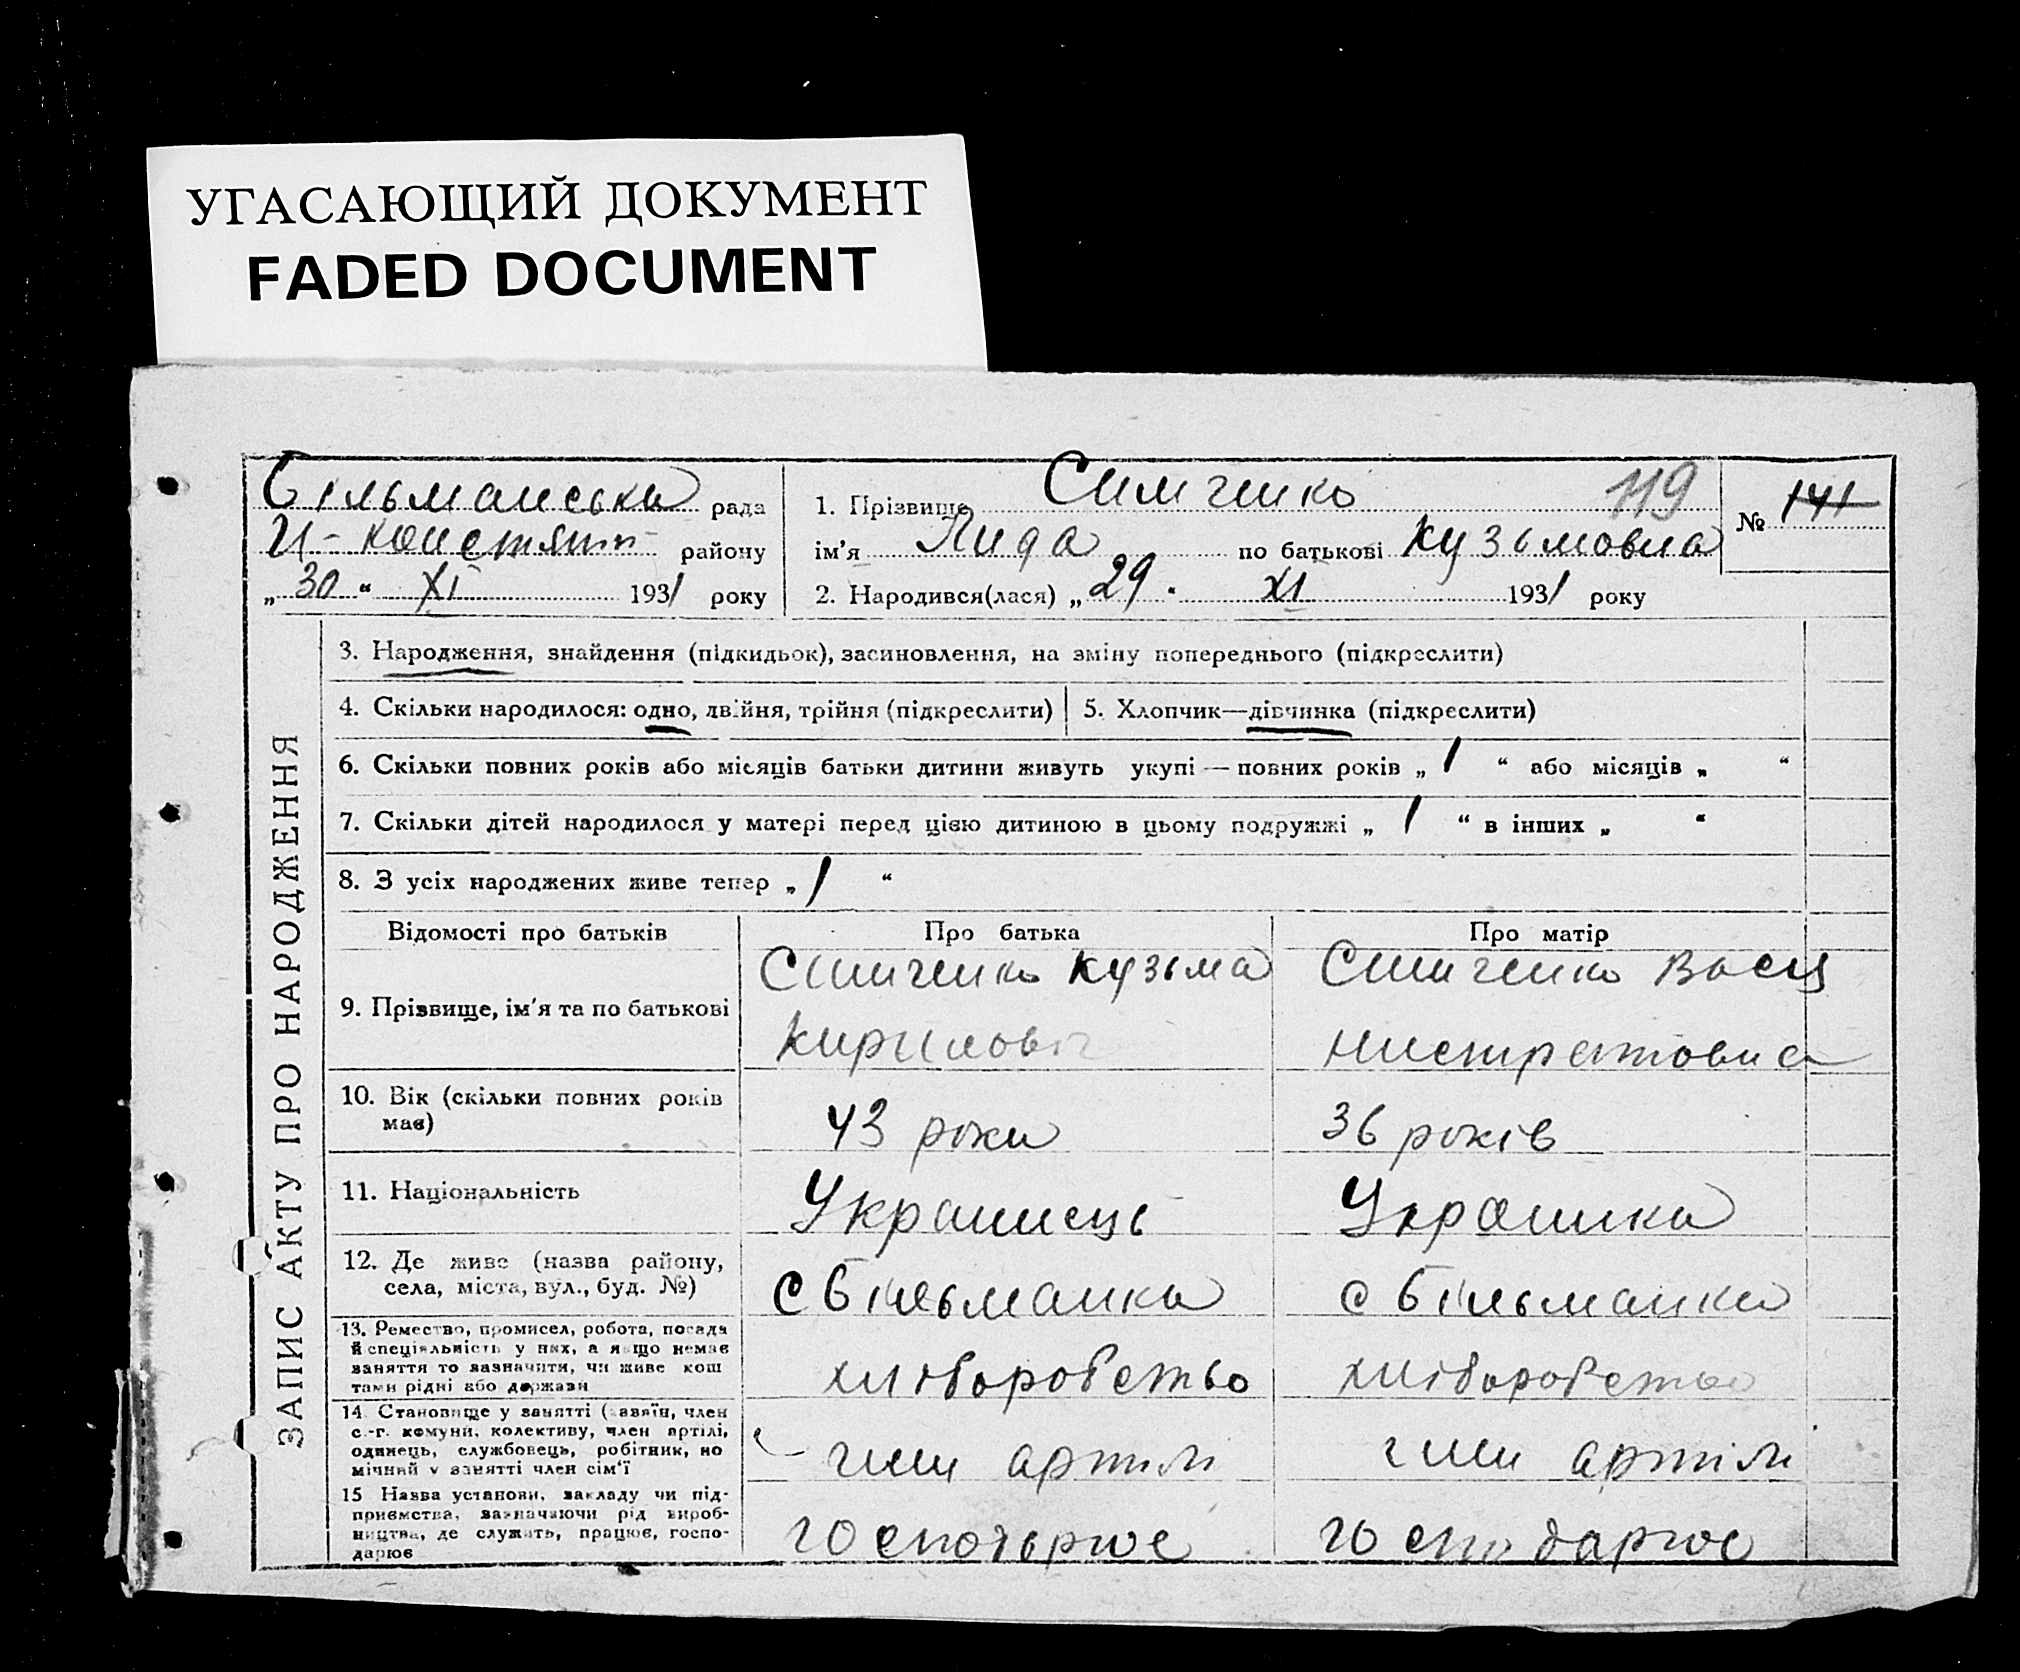 УГАСАЮЩИЙ ДОКУМЕНТ
FADED DOCUMENT
Більманська рада
Ц-Констянт- району
„30“ XI 1931 року
1. Прізвище Симченко 119
ім'я Лида по батькові Кузьмовна
2. Народився(лася) „29" XI 1931 року
№ 141
ЗАПИС АКТУ ПРО НАРОДЖЕННЯ
3. Народження, знайдення (підкидьок), засиновлення, на зміну попереднього (підкреслити)
4. Скільки народилося: одно, двійня, трійня (підкреслити)
5. Хлопчик—дівчинка (підкреслити)
6. Скільки повних років або місяців батьки дитини живуть укупі — повних років „ 1 “ або місяців „ “
7. Скільки дітей народилося у матері перед цією дитиною в цьому подружжі „ 1 “ в інших „ “
8. З усіх народжених живе тепер „ 1 “
Відомості про батьків
Про батька
Про матір
9. Прізвище, ім'я та по батькові
Симченко Кузьма
Кирилов
Симченко
10. Вік (скільки повних років
має)
43 роки
36 років
11. Національність
Украинець
Украинка
12. Де живе (назва району,
села, міста, вул., буд. №)
с Більманка
с Більманка
13. Ремество, промисел, робота, посада
й спеціяльність у них, а якщо немає
заняття то зазначити, чи живе кош
тами рідні або держави
хліборобство
хліборобство
14. Становище у занятті (хазяїн, член
с.-г. комуни, колективу, член артілі,
одинець, службовець, робітник, по
мічний у занятті член сім'ї
член артілі
член артілі
15 Назва установи, закладу чи під-
приємства, зазначаючи рід вироб-
ництва, де служить, працює, госпо-
дарює
господарює
господарює